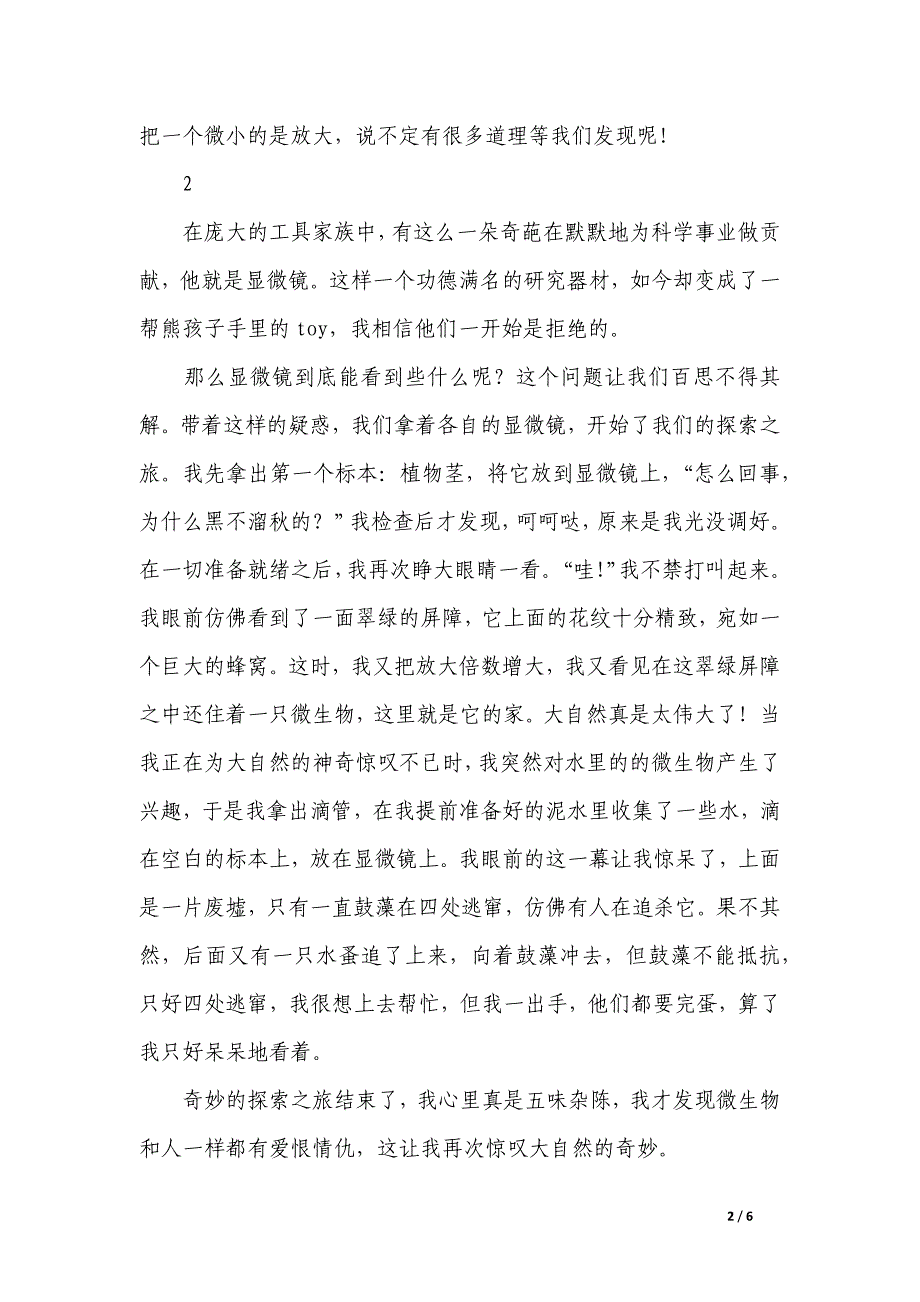 把一个微小的是放大，说不定有很多道理等我们发现呢！
2
在庞大的工具家族中，有这么一朵奇葩在默默地为科学事业做贡
献，他就是显微镜。这样一个功德满名的研究器材，如今却变成了一
帮熊孩子手里的 toy，我相信他们一开始是拒绝的。
那么显微镜到底能看到些什么呢？这个问题让我们百思不得其
解。带着这样的疑惑，我们拿着各自的显微镜，开始了我们的探索之
旅。我先拿出第一个标本：植物茎，将它放到显微镜上，“怎么回事，
为什么黑不溜秋的？”我检查后才发现，呵呵哒，原来是我光没调好。
在一切准备就绪之后，我再次睁大眼睛一看。“哇！”我不禁打叫起来。
我眼前仿佛看到了一面翠绿的屏障，它上面的花纹十分精致，宛如一
个巨大的蜂窝。这时，我又把放大倍数增大，我又看见在这翠绿屏障
之中还住着一只微生物，这里就是它的家。大自然真是太伟大了！当
我正在为大自然的神奇惊叹不已时，我突然对水里的的微生物产生了
兴趣，于是我拿出滴管，在我提前准备好的泥水里收集了一些水，滴
在空白的标本上，放在显微镜上。我眼前的这一幕让我惊呆了，上面
是一片废墟，只有一直鼓藻在四处逃窜，仿佛有人在追杀它。果不其
然，后面又有一只水蚤追了上来，向着鼓藻冲去，但鼓藻不能抵抗，
只好四处逃窜，我很想上去帮忙，但我一出手，他们都要完蛋，算了
我只好呆呆地看着。
奇妙的探索之旅结束了，我心里真是五味杂陈，我才发现微生物
和人一样都有爱恨情仇，这让我再次惊叹大自然的奇妙。
2 / 6